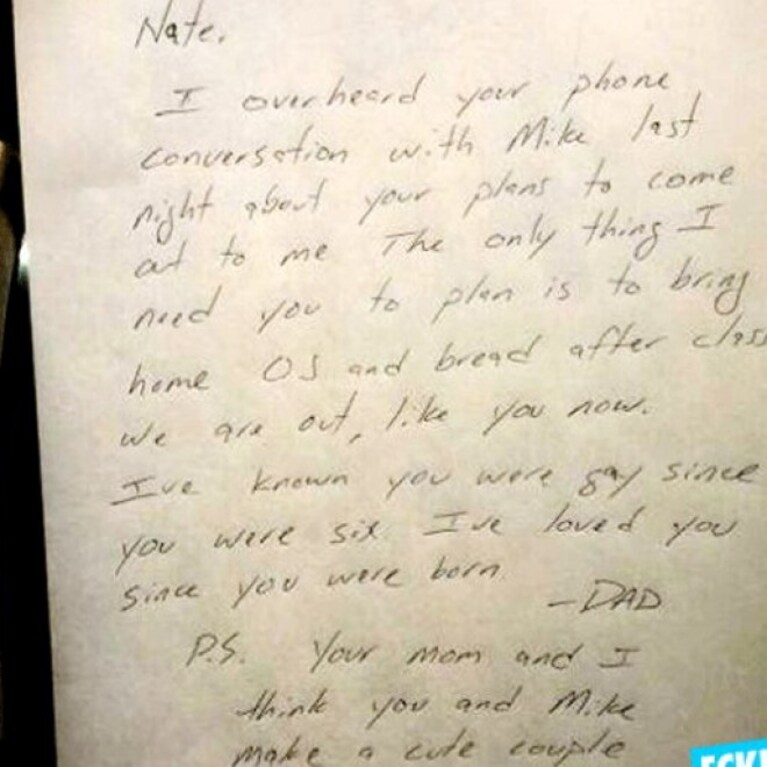 Nate.
I overheard your phone
conversation with Mike last
night about your plans to come
out to me The only thing I
need you to plan is to bring
home OJ and bread after class
we are out, like you now.
I've known you were gay since
you were six I've loved you
since you were born.
-DAD
P.S. Your mom and I
think you and Mike
make a cute couple